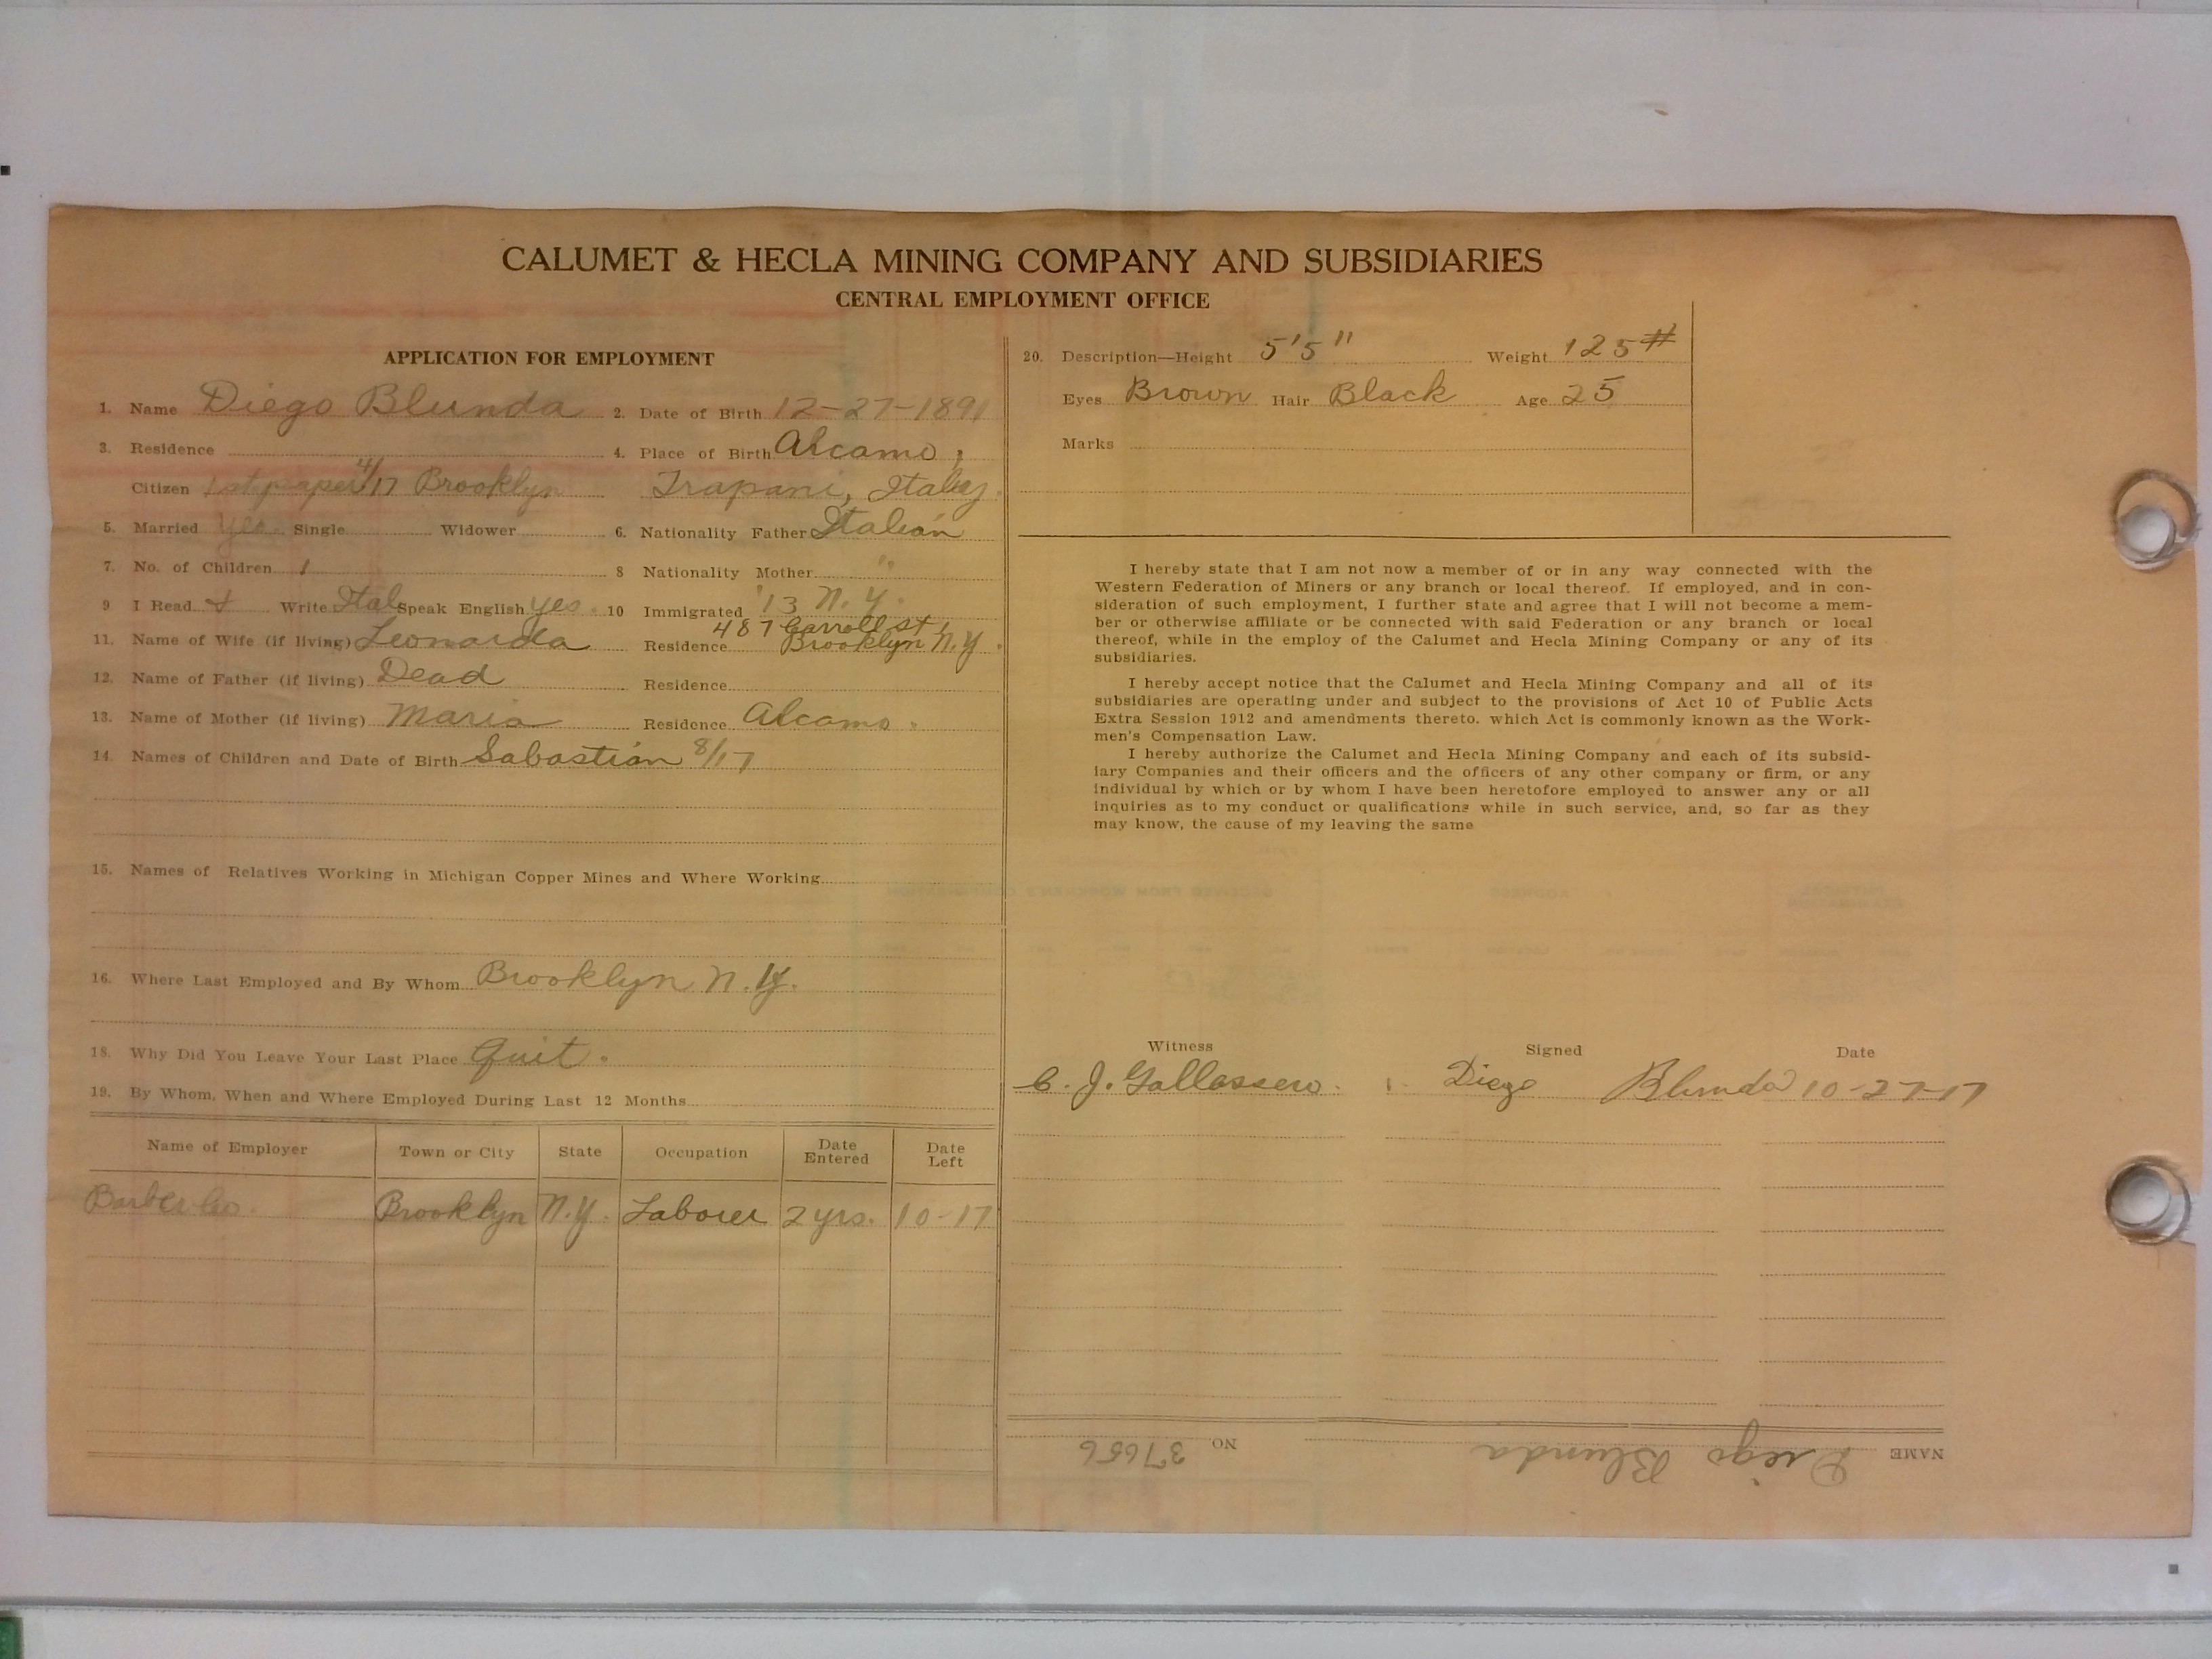 CALUMET & HECLA MINING COMPANY AND SUBSIDIARIES
CENTRAL EMPLOYMENT OFFICE
APPLICATION FOR EMPLOYMENT
1. Name Diego Blunda 2. Date of Birth 12-27-1891
3. Residence 4. Place of Birth Alcamo,
Citizen 1st paper 4/17 Brooklyn Trapani, Italy.
5. Married Yes. Single Widower 6. Nationality Father Italian
7. No. of Children 1 8 Nationality Mother "
9 I Read & Write Ital Speak English yes. 10 Immigrated '13 N.Y.
487 Carroll St.
11. Name of Wife (if living) Leonarda Residence Brooklyn N.Y.
12. Name of Father (if living) Dead Residence
13. Name of Mother (if living) Maria Residence Alcamo.
14. Names of Children and Date of Birth Sabastian 8/17
15. Names of Relatives Working in Michigan Copper Mines and Where Working
16. Where Last Employed and By Whom Brooklyn N.Y.
18. Why Did You Leave Your Last Place Quit.
19. By Whom, When and Where Employed During Last 12 Months
Name of Employer Town or City State Occupation Date Entered Date Left
Barber Co. Brooklyn N.Y. Laborer 2 yrs. 10-17
20. Description—Height 5'5" Weight 125#
Eyes Brown Hair Black Age 25
Marks
I hereby state that I am not now a member of or in any way connected with the
Western Federation of Miners or any branch or local thereof. If employed, and in con-
sideration of such employment, I further state and agree that I will not become a mem-
ber or otherwise affiliate or be connected with said Federation or any branch or local
thereof, while in the employ of the Calumet and Hecla Mining Company or any of its
subsidiaries.
I hereby accept notice that the Calumet and Hecla Mining Company and all of its
subsidiaries are operating under and subject to the provisions of Act 10 of Public Acts
Extra Session 1912 and amendments thereto. which Act is commonly known as the Work-
men's Compensation Law.
I hereby authorize the Calumet and Hecla Mining Company and each of its subsid-
iary Companies and their officers and the officers of any other company or firm, or any
individual by which or by whom I have been heretofore employed to answer any or all
inquiries as to my conduct or qualifications while in such service, and, so far as they
may know, the cause of my leaving the same
Witness Signed Date
C. J. Gallassero. Diego Blunda 10-27-17
NAME Diego Blunda NO 37656